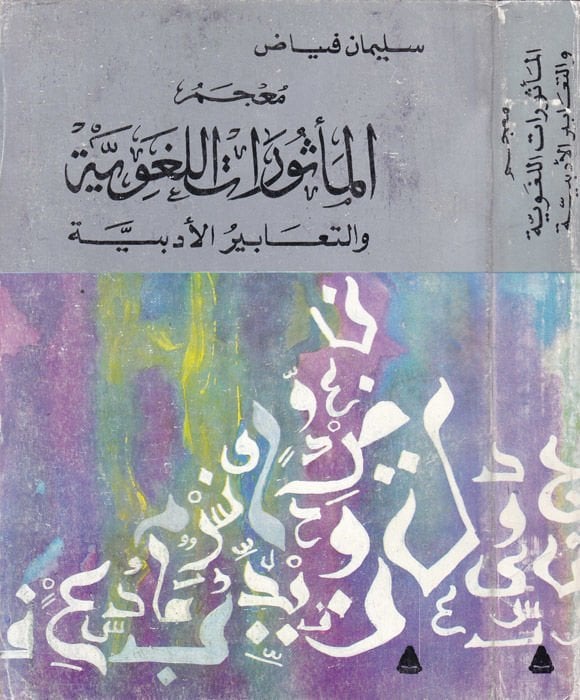 سليمان فياض
مُعْجَمُ
المأثُورَات اللغَوِيَّة
والتعَابيرُ الأدبيَّة
معجم
المأثورات اللغويّة
والتعابير الأدبيّة